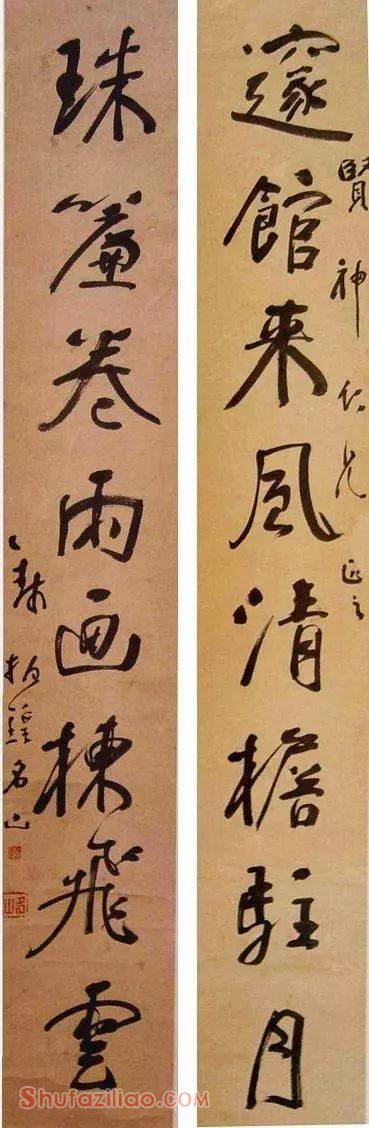 邃館来風清檐駐月
賢神仁兄正之
珠簾卷雨画棟飛雲
振鍠名山
名山
Shufaziliao.com